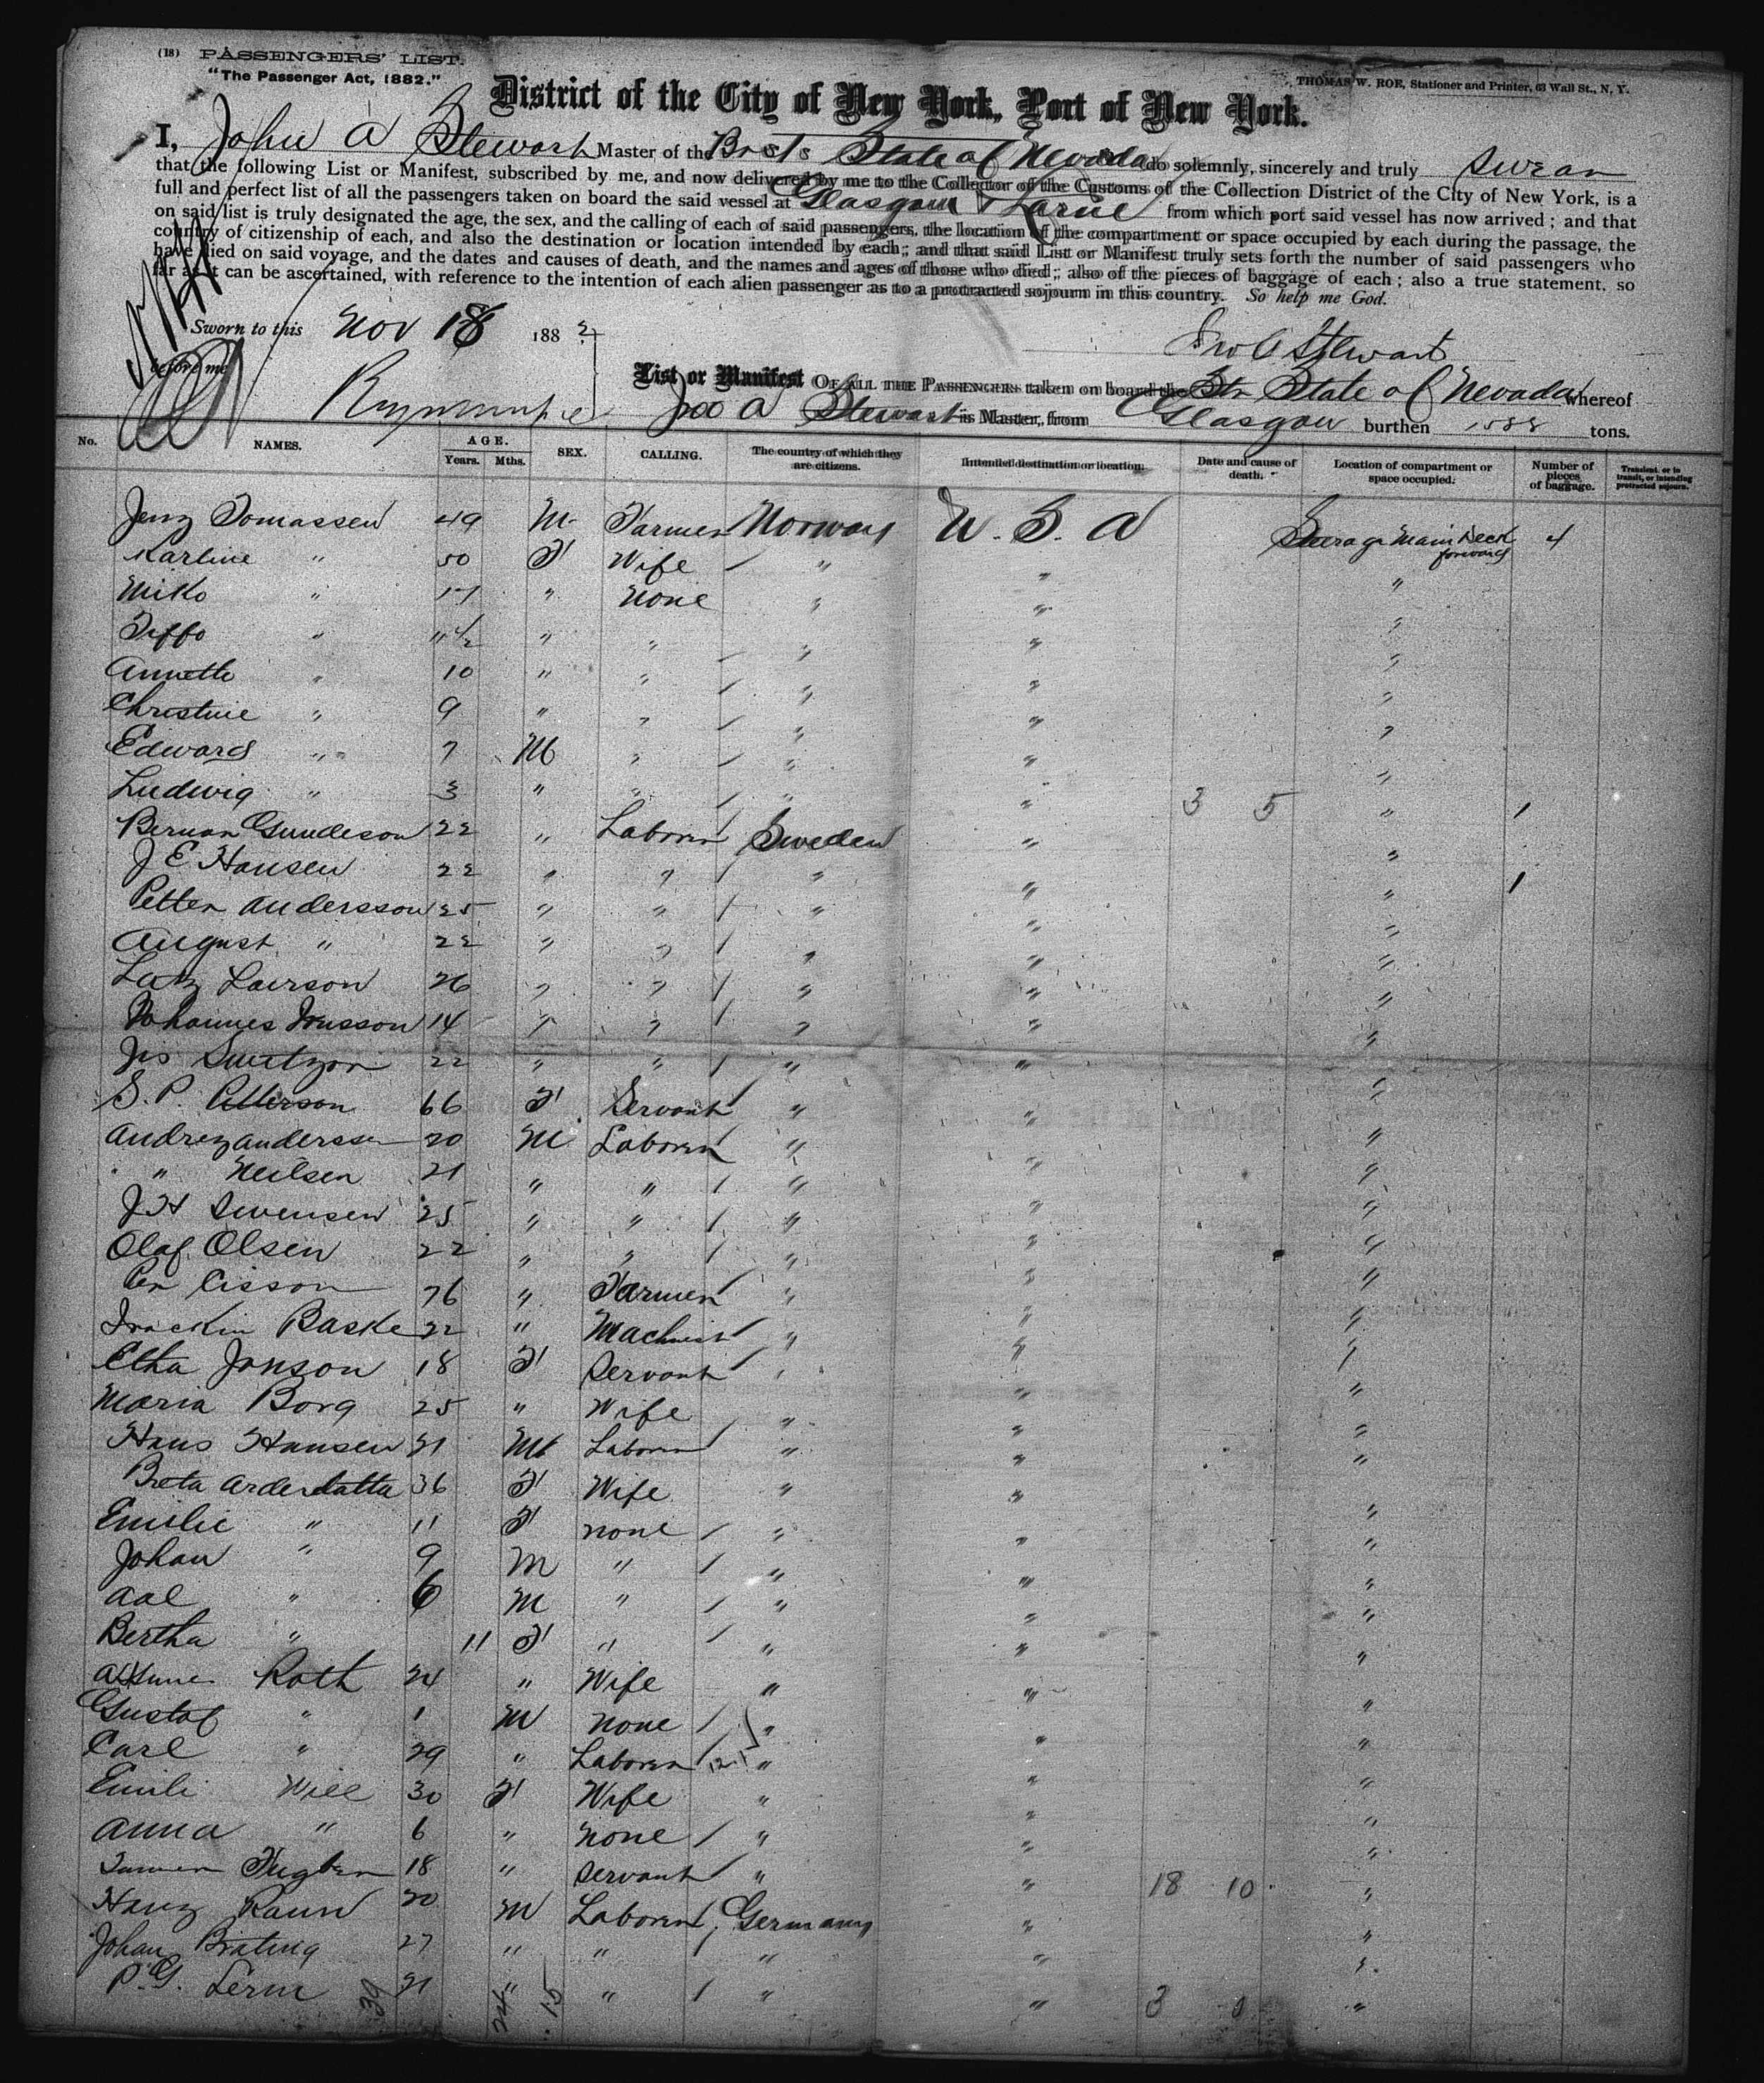 (18) PASSENGERS' LIST.
"The Passenger Act, 1882."
THOMAS W. ROE, Stationer and Printer, 63 Wall St., N. Y.
District of the City of New York, Port of New York.
I, John A Stewart Master of the State of Nevada do solemnly, sincerely and truly swear
that the following List or Manifest, subscribed by me, and now delivered by me to the Collector of the Customs of the Collection District of the City of New York, is a
full and perfect list of all the passengers taken on board the said vessel at Glasgow & Larne from which port said vessel has now arrived; and that
on said list is truly designated the age, the sex, and the calling of each of said passengers, the location of the compartment or space occupied by each during the passage, the
country of citizenship of each, and also the destination or location intended by each; and that said List or Manifest truly sets forth the number of said passengers who
have died on said voyage, and the dates and causes of death, and the names and ages of those who died; also of the pieces of baggage of each; also a true statement, so
far as it can be ascertained, with reference to the intention of each alien passenger as to a protracted sojourn in this country. So help me God.
Sworn to this Nov 18 188
before me
Jno A Stewart
List or Manifest OF ALL THE PASSENGERS taken on board the Str State of Nevada whereof
Jno A Stewart is Master, from Glasgow burthen 1588 tons.
No. NAMES. AGE. Years. Mths. SEX. CALLING. The country of which they are citizens. Intended destination or location. Date and cause of death. Location of compartment or space occupied. Number of pieces of baggage. Transient, or in transit, or intending protracted sojourn.
Jenz Tomassen 49 M Farmer Norway U. S. A Steerage Main Deck forward 4
Karline " 50 F Wife " " "
Miko " 17 " None " " "
" 11 1/2 " " " " "
Annette " 10 " " " " "
Christine " 9 " " " " "
Edward " 7 M " " " "
Ludwig " 3 " " " " 3 5 " 1
Gundeson 22 " Laborer Sweden " "
J E Hansen 22 " " " " " 1
Petter Andersson 25 " " " " "
August " 22 " " " " "
Larson 26 " " " " "
Johannes Jonsson 14 " " " " "
22 " " " " "
S. P. Petterson 66 F Servant " " "
Andrez Anderssen 20 M Laborer " " "
" Neilsen 21 " " " " "
J H Swensen 25 " " " " "
Olaf Olsen 22 " " " " "
Per 26 " Farmer " " "
Baske 22 " Machinist " " "
Etha Jonson 18 F Servant " " "
Maria Borg 25 " Wife " " "
Hans Hansen 21 M Laborer " " "
Breta 36 F Wife " " "
Emilie " 11 F none " " "
Johan " 9 M " " " "
" 6 M " " " "
Bertha " 11 F " " " "
Roth 24 " Wife " " "
Gustaf " 1 M None " " "
Carl " 29 " Laborer " " "
Emili Will 30 F Wife " " "
Anna " 6 " None " " "
18 " Servant " " 18 10 "
Hanz Raun 20 M Laborer Germany " "
Johan Brating 27 " " " " "
P. G. Lerm 21 " " " " 3 "
39 24 15